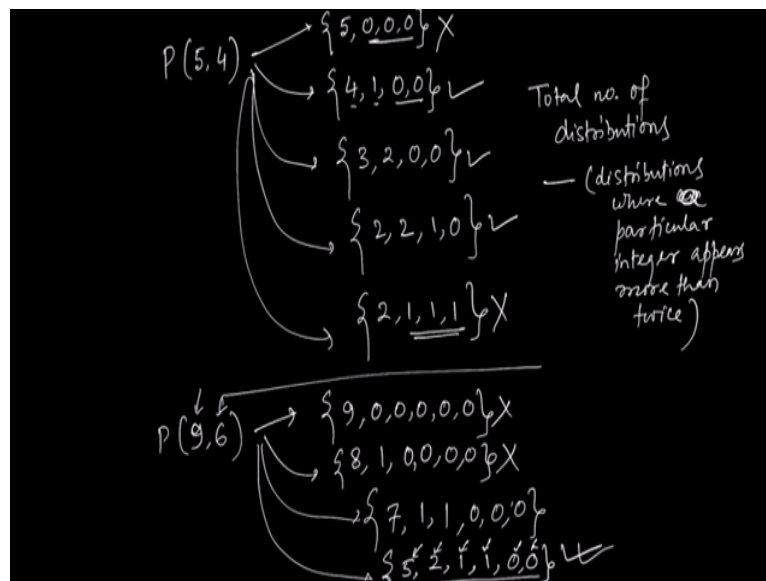 P(5,4)
{5,0,0,0} X
{4,1,0,0} ✓
{3,2,0,0} ✓
{2,2,1,0} ✓
{2,1,1,1} X
Total no. of
distributions
— (distributions
where a
particular
integer appears
more than
twice)
P(9,6)
{9,0,0,0,0,0} X
{8,1,0,0,0,0} X
{7,1,1,0,0,0}
{5,2,1,1,0,0} ✓